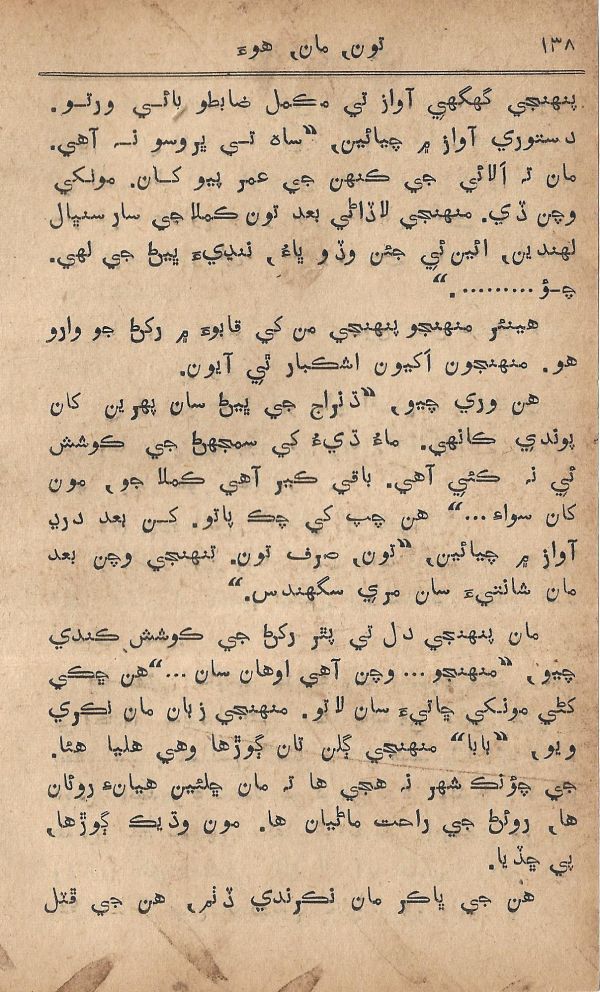 ۱۳۸
تون, مان, هوءَ
پنهنجي گهگهي آواز تي مڪمل ضابطو بائي ورتو.
دستوري آواز ۾ چيائين, “ساه تي ڀروسو نہ آهي.
مان تہ الائي جي ڪنهن جي عمر پيو کان. مونکي
وچن ڏي. منهنجي لاڏاڻي بعد تون ڪملا جي سار سنڀال
لهندين, ائين ئي جئن وڏو ڀاءُ, ننڍيءَ ڀيڻ جي لهي.
چؤ..........”
هينئر منهنجو پنهنجي من کي قابوءَ ۾ رکڻ جو وارو
هو. منهنجون اکيون اشڪبار ٿي آيون.
هن وري چيو, “ڌنراج جي ڀيڻ سان پهرين کان
پوندي ڪانهي. ماءُ ڌيءُ کي سمجهڻ جي ڪوشش
ئي نہ ڪئي آهي. باقي ڪير آهي ڪملا جو, مون
کان سواءِ...” هن چپ کي چڪ پاتو. کن بعد دريل
آواز ۾ چيائين, “تون, صرف تون. تنهنجي وچن بعد
مان شانتيءَ سان مري سگهندس.”
مان پنهنجي دل تي پٿر رکڻ جي ڪوشش ڪندي
چيو, “منهنجو... وچن آهي اوهان سان...” هن ڇڪي
کڻي مونکي ڇاتيءَ سان لاتو. منهنجي زبان مان نڪري
ويو, “بابا” منهنجي ڳلن تان ڳوڙها وهي هليا هئا.
جي چؤنڪ شهر نہ هجي ها تہ مان ڇلئين هيانءِ روئان
ها, روئڻ جي راحت ماڻيان ها. مون وڌيڪ ڳوڙها,
پي ڇڏيا.
هن جي ڀاڪر مان نڪرندي ڏٺم, هن جي ڦٽل